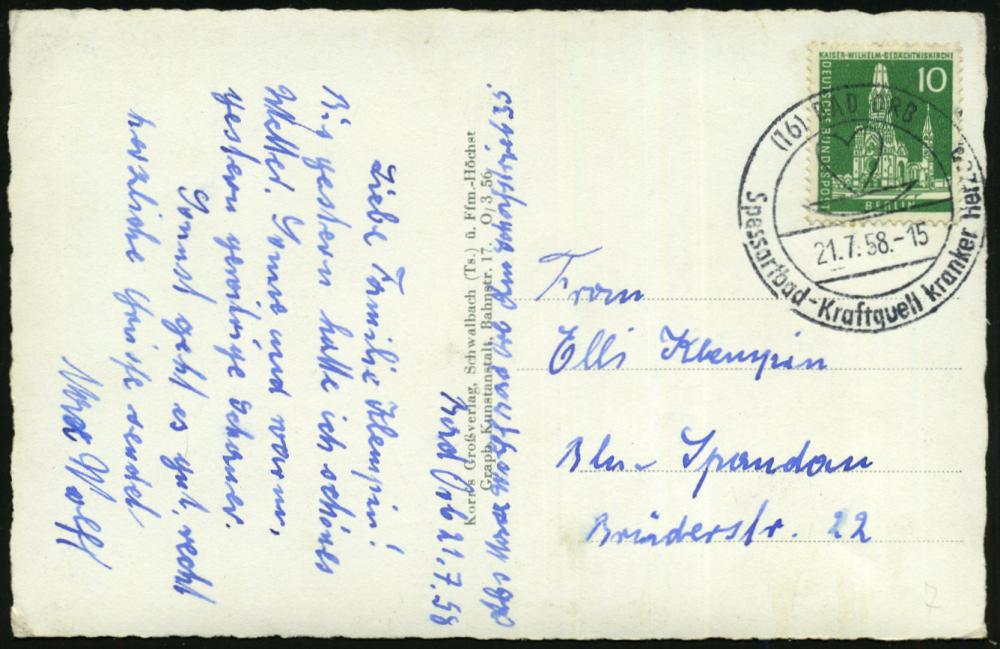 Bad Orb 21.7.58
Liebe Familie Klempin!
Bis gestern hatte ich schönes
Wetter. Sonne und warm,
gestern gewittrige Schauer.
Sonst geht es gut, recht
herzliche Grüsse sendet
Wolff
Korr's Großverlag, Schwalbach (Ts.) ü. Ffm.-Höchst
Graph. Kunstanstalt, Bahnstr. 17. O/3 56
KAISER-WILHELM-GEDÄCHTNISKIRCHE
10
DEUTSCHE BUNDESPOST
BERLIN
(16) BAD ORB
21.7.58.-15
Spessartbad-Kraftquell kranker Herzen
Frau
Elli Klempin
Bln.- Spandau
Brüderstr. 22
7